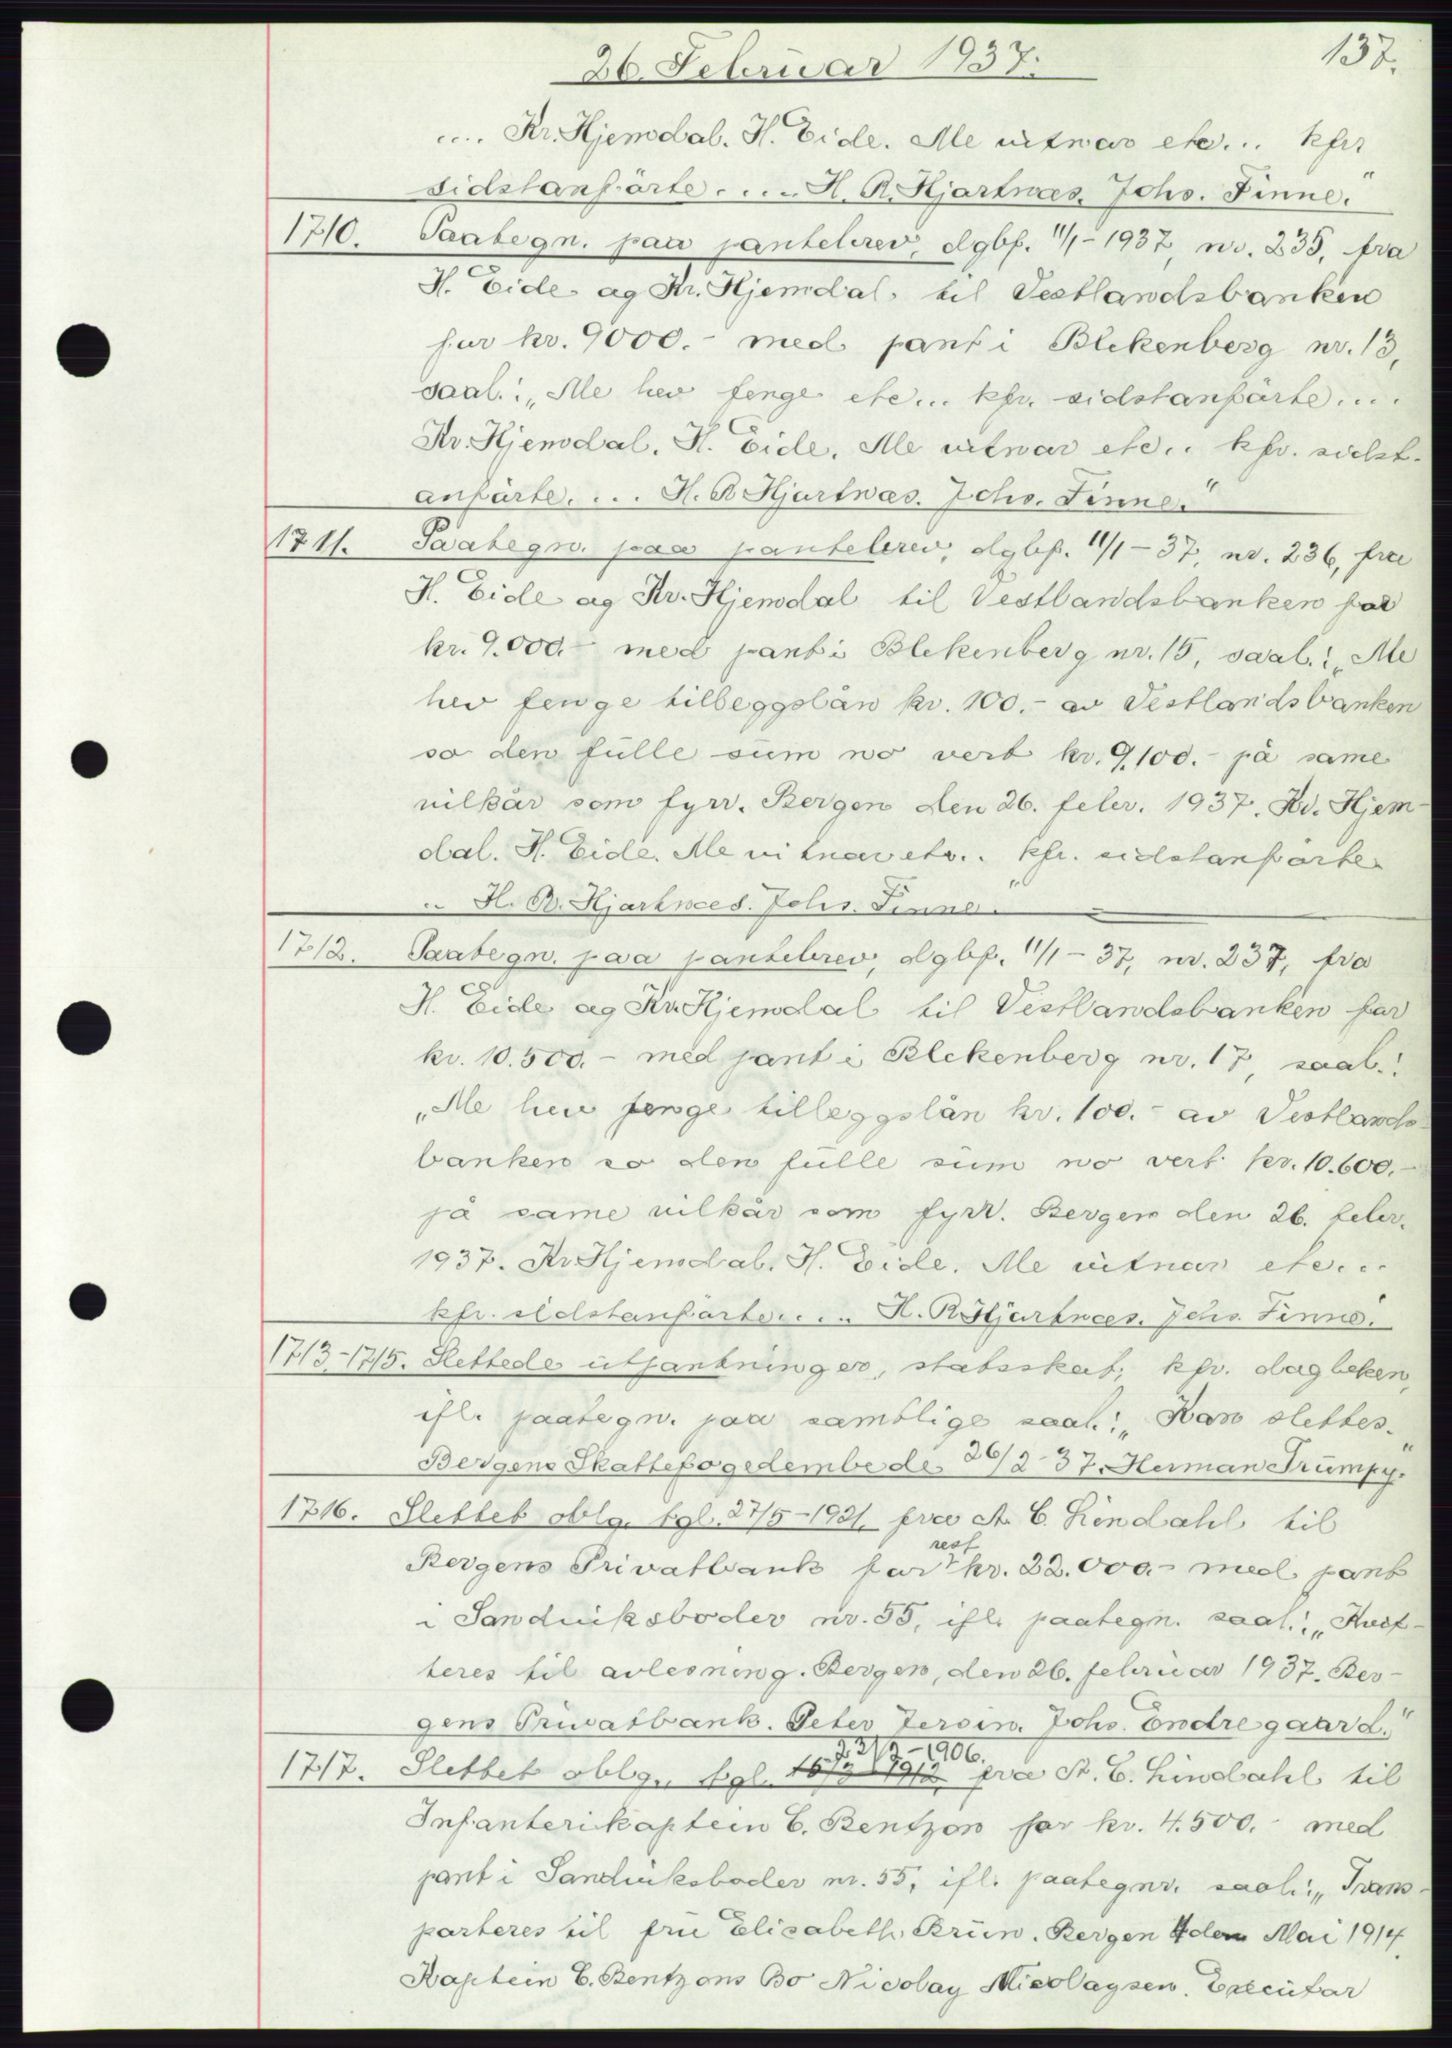 26. Februar 1937.
137.
.... Kr. Hjemdal. H. Eide. Me vitnar etc... kfr
sidstanförte.... H. R. Hjartnæs. Johs. Finne."
1710. Paategn. paa pantebrev, dgbf. 11/1-1937, nr. 235, fra
H. Eide og Kr. Hjemdal til Vestlandsbanken
for kr. 9000.- med pant i Blekenberg nr. 13,
saal.: „Me hev fenge etc... kfr. sidstanförte....
Kr. Hjemdal. H. Eide. Me vitnar etc.. kfr. sidst-
anförte.... H. R Hjartnæs. Johs. Finne."
1711. Paategn. paa pantebrev, dgbf. 11/1-37, nr. 236, fra
H. Eide og Kr. Hjemdal til Vestlandsbanken for
kr. 9.000.- med pant i Blekenberg nr. 15, saal.: „Me
hev fenge tilleggslån kr. 100.- av Vestlandsbanken
so den fulle sum no vert kr. 9.100.- på same
vilkår som fyrr. Bergen den 26. febr. 1937. Kr. Hjem-
dal. H. Eide. Me vitnar etc.. kfr. sidstanförte
.. H. R. Hjartnæs. Johs. Finne."
1712. Paategn. paa pantebrev, dgbf. 11/1-37, nr. 237, fra
H. Eide og Kr. Hjemdal til Vestlandsbanken for
kr. 10.500.- med pant i Blekenberg nr. 17, saal.:
„Me hev fenge tilleggslån kr. 100.- av Vestlands-
banken so den fulle sum no vert kr. 10.600.-
på same vilkår som fyrr. Bergen den 26. febr.
1937. Kr Hjemdal. H. Eide. Me vitnar etc...
kfr. sidstanförte..... H. R Hjartnæs. Johs. Finne."
1713-1715. Slettede utpantninger, statsskat, kfr. dagboken,
ifl. paategn. paa samtlige saal.: „Kan slettes.
Bergens Skattefogedembede 26/2-37. Herman Trumpy."
1716. Slettet oblg. tgl. 27/5-1921 fra A. C. Lindahl til
Bergens Privatbank for rest kr. 22.000.- med pant
i Sandviksboder nr. 55, ifl. paategn. saal.: „Kvit-
teres til avlesning. Bergen, den 26. februar 1937. Ber-
gens Privatbank. Peter Jersin. Johs. Endregaard."
22/2-1906.
1717. Slettet oblg., tgl. 16/3 1912 fra A. C. Lindahl til
Infanterikaptein C. Bentzon for kr. 4.500.- med
pant i Sandviksboder nr. 55, ifl. paategn. saal.: „Trans-
porteres til fru Elisabeth Brun. Bergen 4den Mai 1914.
Kaptein C. Bentzons Bo Nicolay Nicolaysen. Executor